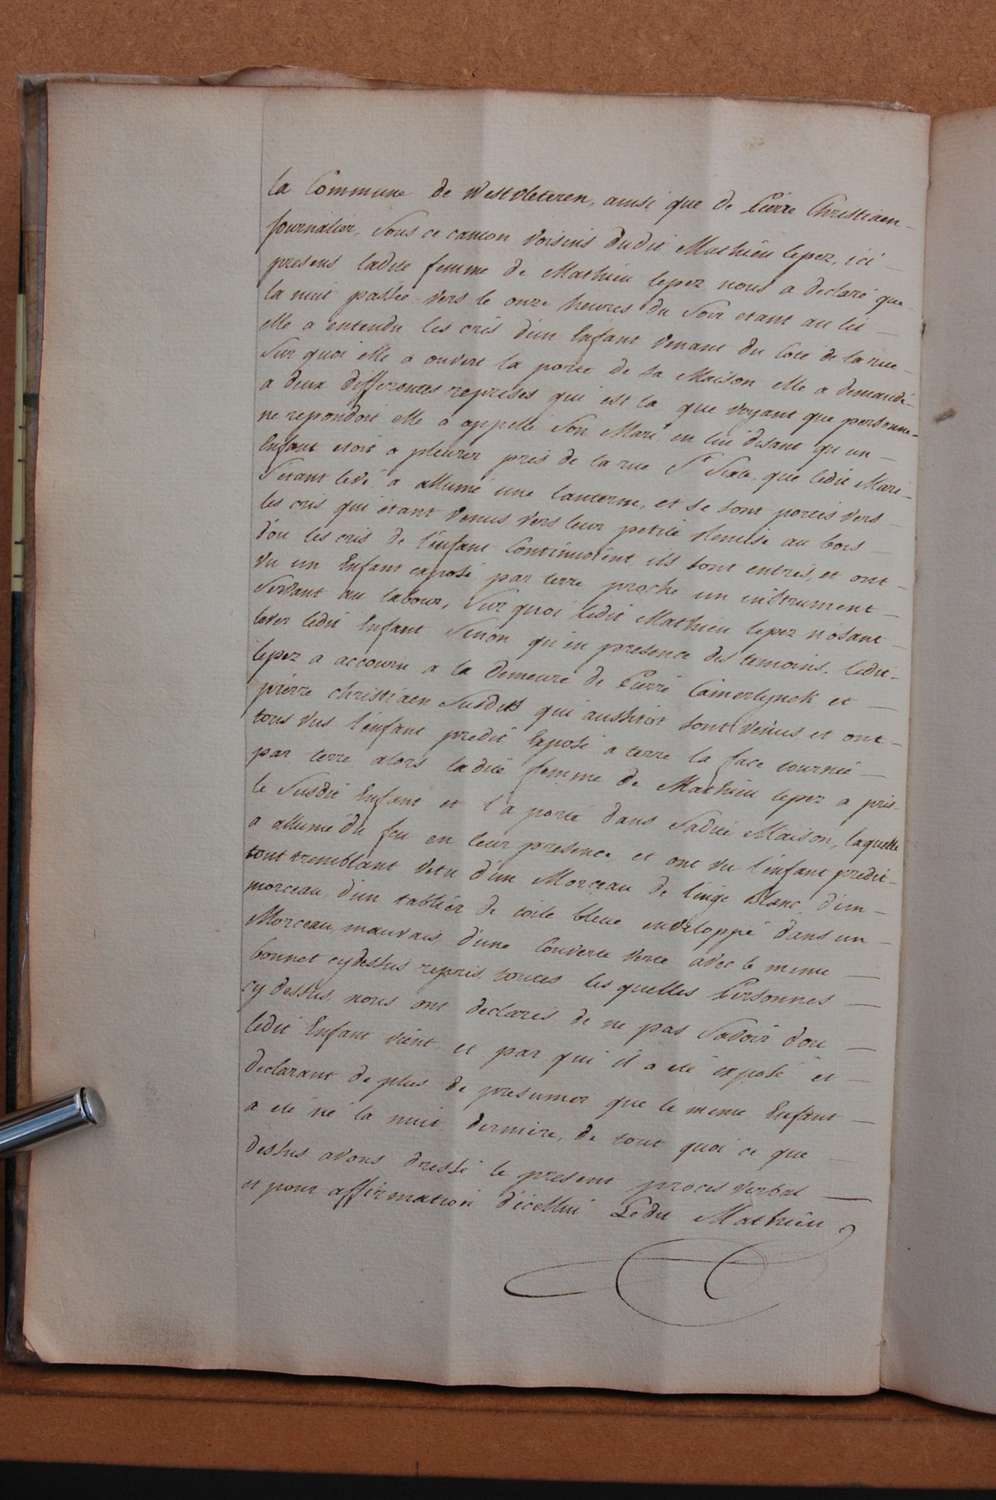 la Commune de Westvleteren, ainsi que de Pierre Christiaen -
journalier, sous ce canton voisins dudit Mathieu lepez, ici -
presens ladite femme de Mathieu lepez nous a declaré que
la nuit passée vers le onze heures du soir etant au lit -
elle a entendu les cris d'un Enfant venant du Coté de la rue -
sur quoi elle a ouvert la porte de sa Maison elle a demandé -
a deux differentes reprises qui est la que voyant que personne -
ne repondoit elle a appellé son Mari en lui disant qu'un -
Enfant etoit a pleurer près de la rue St Sixte que ledit Mari -
s'etant levé a allumé une lanterne, et se sont portés vers -
les cris qui etant venus vers leur petite Remise au bors -
d'ou les cris de l'enfant Continuoient ils sont entrés, et ont -
vu un Enfant exposé par terre proche un instrument -
servant au labour, sur quoi ledit Mathieu lepez n'osant -
lever ledit Enfant sinon qu'en presence des temoins. ledit -
lepez a accouru a la demeure de Pierre Camerlynck et -
pierre christiaen susdits qui aussitot sont venus et ont -
tous vus l'enfant predit Exposé a terre la face tournée -
par terre alors ladite femme de Mathieu lepez a pris
le susdit Enfant et l'a porté dans sadite Maison, laquelle
a allumé du feu en leur presence et ont vu l'enfant predit -
tout tremblant vetu d'un Morceau de linge Blanc, d'un -
morceau d'un tablier de toile bleue enveloppé dans un -
Morceau mauvais d'une Couverte verte avec le meme -
bonnet cydessus repris, toutes les quelles Personnes -
cy dessus, nous ont declarés de ne pas savoir d'ou -
ledit Enfant vient et par qui il a eté exposé et -
declarant de plus de presumer que le meme Enfant -
a eté né la nuit derniere, de tout quoi ce que -
dessus avons dressé le present procès verbal -
et pour affirmation d'icellui Ledit Mathieu